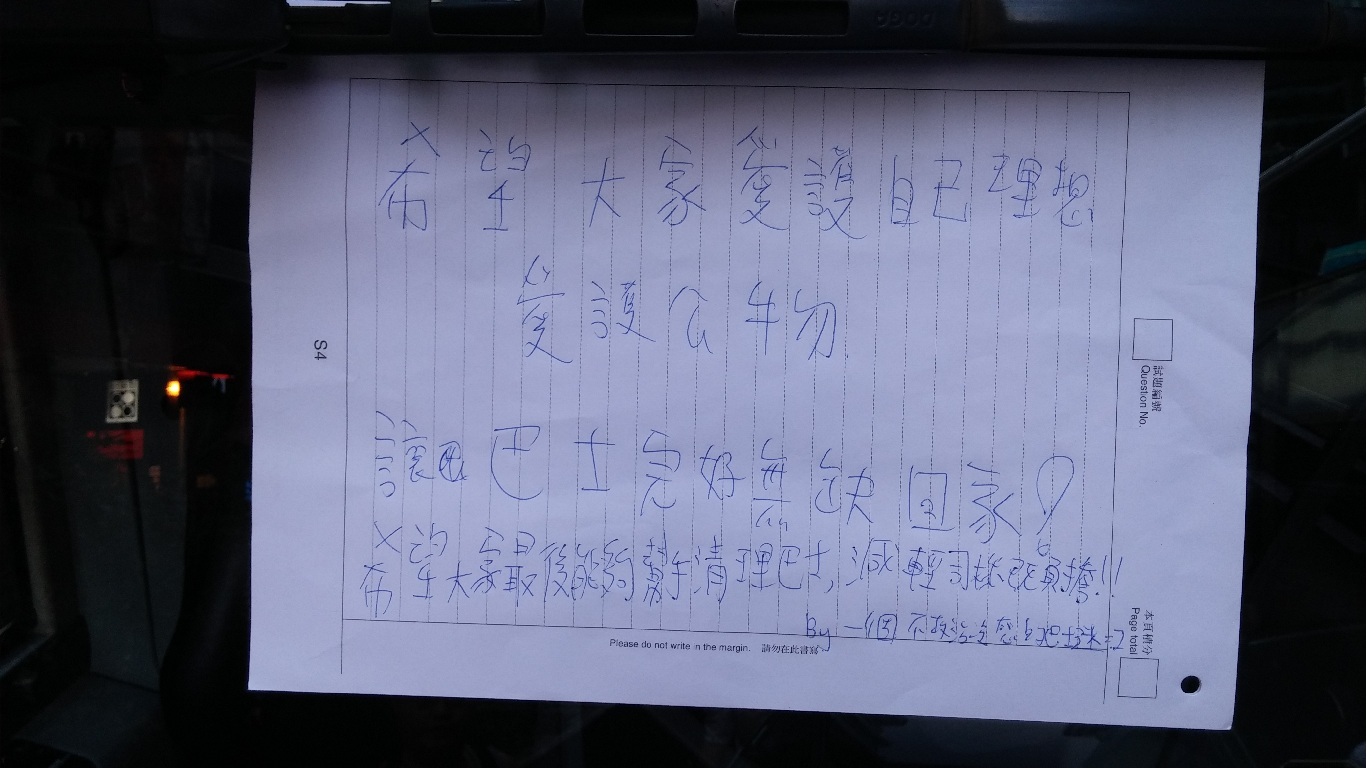 希望大家愛護自己理想
愛護公物
讓巴士完好無缺回家!
希望大家最後能夠幫手清理巴士,減輕司機負擔!!
By 一個不敬
Please do not write in the margin. 請勿在此書寫。
S4
試題編號
Question No.
本頁積分
Page total